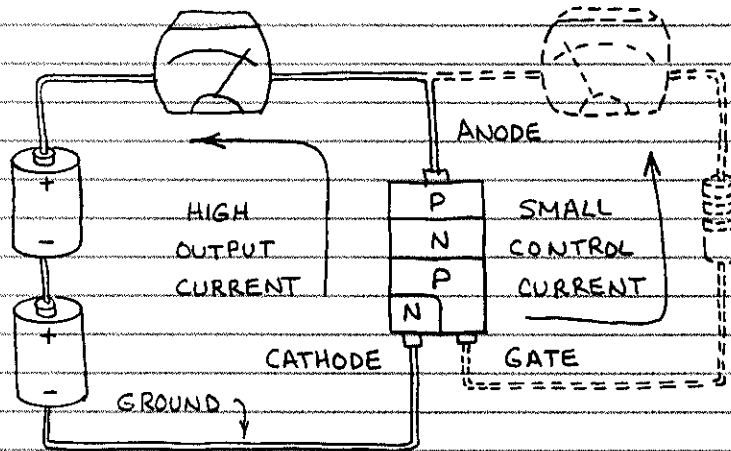 ANODE
HIGH
OUTPUT
CURRENT
SMALL
CONTROL
CURRENT
P
N
P
N
CATHODE
GATE
GROUND
+
-
+
-